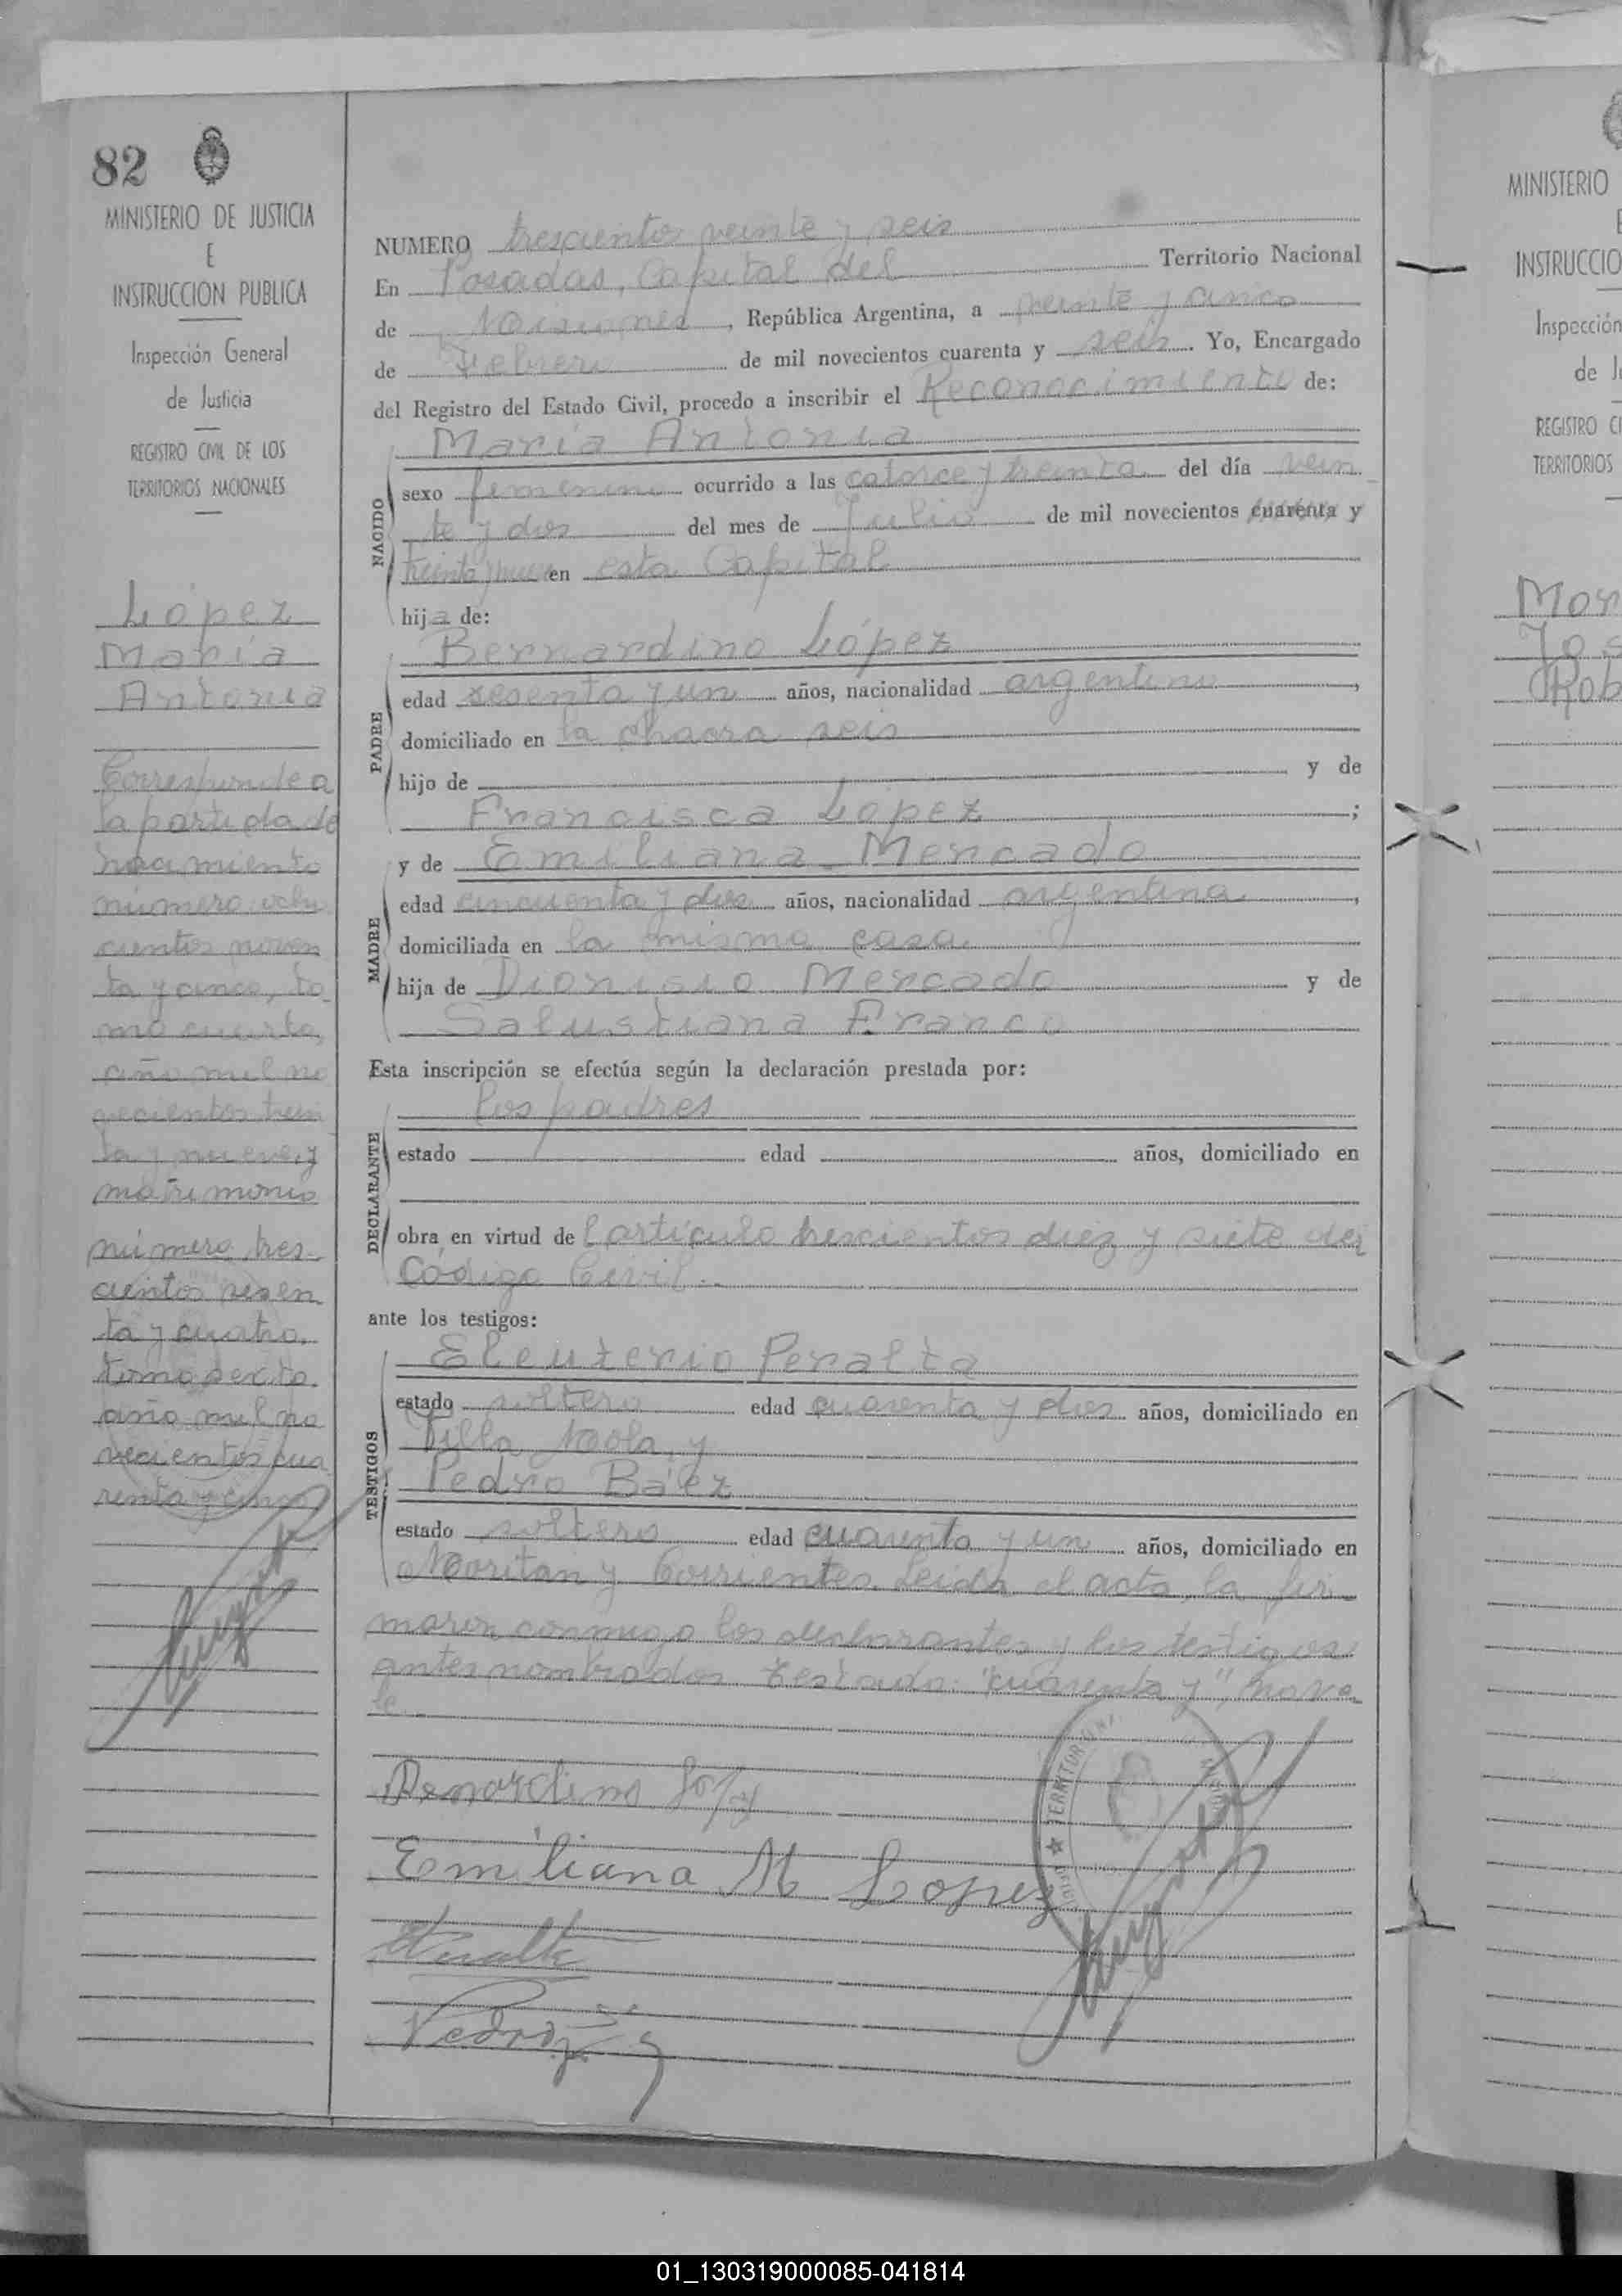 82
MINISTERIO DE JUSTICIA
E
INSTRUCCION PUBLICA
Inspección General
de Justicia
REGISTRO CIVIL DE LOS
TERRITORIOS NACIONALES
López
María
Antonia
Corresponde a
la partida de
nacimiento
número ocho
cientos noven
ta y cinco, to
mo cuarto,
año mil no
vecientos trein
ta y nueve, y
matrimonio
número tres-
cientos sesen
ta y cuatro,
tomo sexto,
año mil no
vecientos cua
renta y cinco
NUMERO trescientos veinte y seis
En Posadas, Capital del Territorio Nacional
de Misiones, República Argentina, a veinte y cinco
de Febrero de mil novecientos cuarenta y seis. Yo, Encargado
del Registro del Estado Civil, procedo a inscribir el Reconocimiento de:
María Antonia
NACIDO
sexo femenino ocurrido a las catorce y treinta del día vein
te y dos del mes de Julio de mil novecientos cuarenta y
treinta y nueve en esta Capital
hija de:
Bernardino López
PADRE
edad sesenta y un años, nacionalidad argentino,
domiciliado en la chacra seis
hijo de y de
Francisca López;
y de Emiliana Mercado
MADRE
edad cincuenta y dos años, nacionalidad argentina,
domiciliada en la misma casa
hija de Dionisio Mercado y de
Salustiana Franco
Esta inscripción se efectúa según la declaración prestada por:
los padres
DECLARANTE
estado edad años, domiciliado en
obra en virtud del artículo trescientos diez y siete del
Código Civil.-
ante los testigos:
Eleuterio Peralta
TESTIGOS
estado soltero edad cuarenta y dos años, domiciliado en
Villa Mola, y
Pedro Báez
estado soltero edad cuarenta y un años, domiciliado en
y Corrientes. Leida el acta, la fir
maron conmigo los declarantes y los testigos
antes nombrados. Testado: "cuarenta y", no va
le.-
Bernardino López
Emiliana M López
EPeralta
Pedro
TERRITORIO
MINISTERIO
INSTRUCCIO
Inspección
de Ju
REGISTRO CI
TERRITORIOS
Mor
Jos
Rob
01_130319000085-041814